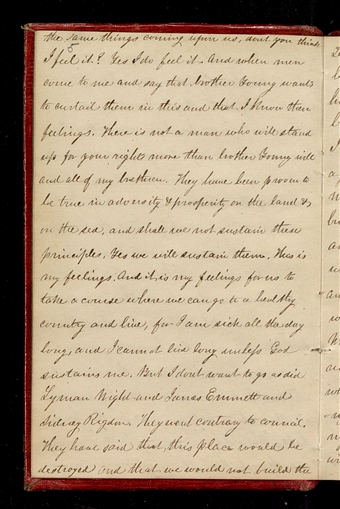 the same things coming upon us, dont you think
5
I feel it? Yes I do feel it. And when men
come to me and say that brother Young wants
to curtail them in this and that. I know their
feelings. There is not a man who will stand
up for your rights more than brother Young will
and all of my brethren. They have been proven to
be true in adversity & prosperity on the land &
on the sea, and shall we not sustain these
principles. Yes we will sustain them. This is
my feelings. And it is my feelings for us to
take a course where we can go to a healthy
country and live, for I am sick all the day
long, and I cannot live long unless God
sustains me. But I dont want to go as did
Lyman Wight and James Emmett and
Sidney Rigdon. They went contrary to council.
They have said that this place would be
destroyed and that we would not build the